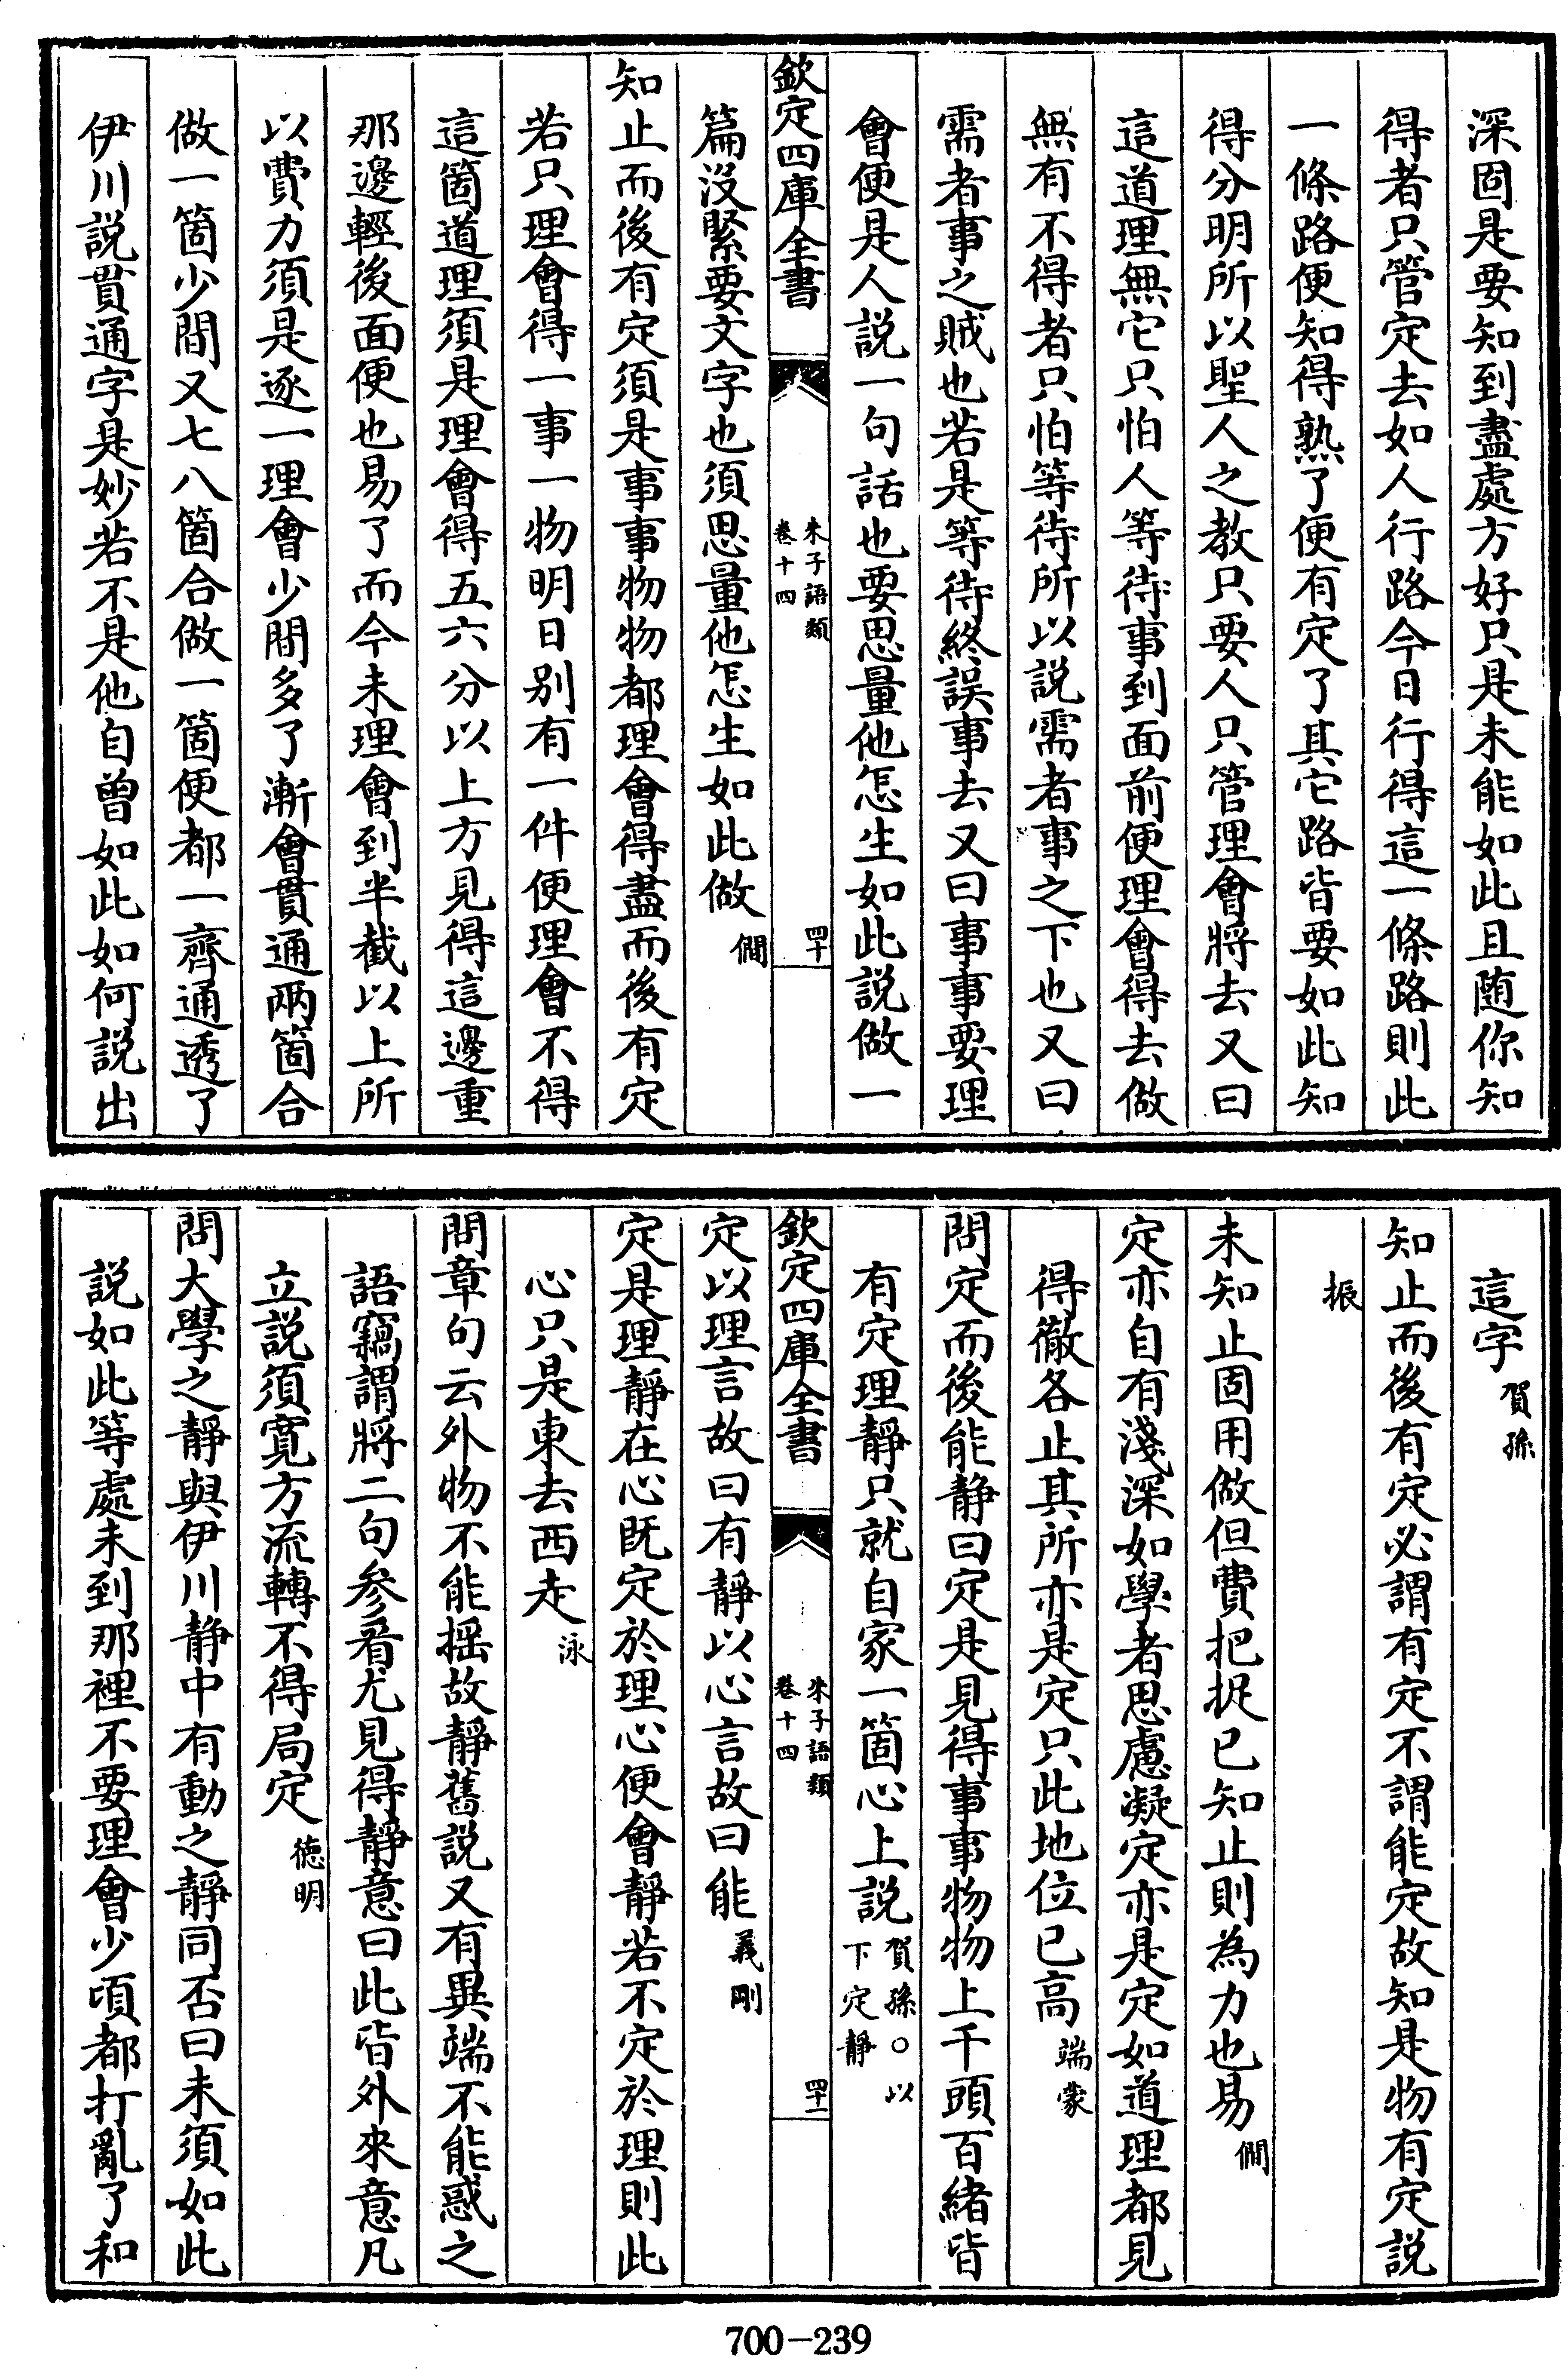 深固是要知到盡處方好只是未能如此且随你知
得者只管定去如人行路今日行得這一條路則此
一條路便知得熟了便有定了其它路皆要如此知
得分明所以聖人之教只要人只管理會將去又曰
這道理無它只怕人等待事到面前便理會得去做
無有不得者只怕等待所以説需者事之下也又曰
需者事之賊也若是等待終誤事去又曰事事要理
會便是人説一句話也要思量他怎生如此説做一
欽定四庫全書
朱子語類
卷十四
四十
篇沒緊要文字也須思量他怎生如此做僩
知止而後有定須是事事物物都理會得盡而後有定
若只理會得一事一物明日别有一件便理會不得
這箇道理須是理會得五六分以上方見得這邊重
那邊輕後面便也易了而今未理會到半截以上所
以費力須是逐一理會少間多了漸會貫通兩箇合
做一箇少間又七八箇合做一箇便都一齊通透了
伊川説貫通字是妙若不是他自曾如此如何説出
這字賀孫
知止而後有定必謂有定不謂能定故知是物有定説
振
未知止固用做但費把捉已知止則為力也易僩
定亦自有淺深如學者思慮凝定亦是定如道理都見
得徹各止其所亦是定只此地位已高端蒙
問定而後能静曰定是見得事事物物上千頭百緒皆
有定理靜只就自家一箇心上説賀孫○以
下定靜
欽定四庫全書
朱子語類
卷十四
四十一
定以理言故曰有靜以心言故曰能義剛
定是理靜在心既定於理心便會靜若不定於理則此
心只是東去西走泳
問章句云外物不能揺故靜舊説又有異端不能惑之
語竊謂將二句参看尤見得靜意曰此皆外來意凡
立説須寛方流轉不得局定徳明
問大學之靜與伊川静中有動之靜同否曰未須如此
説如此等處未到那裡不要理會少頃都打亂了和
700－239